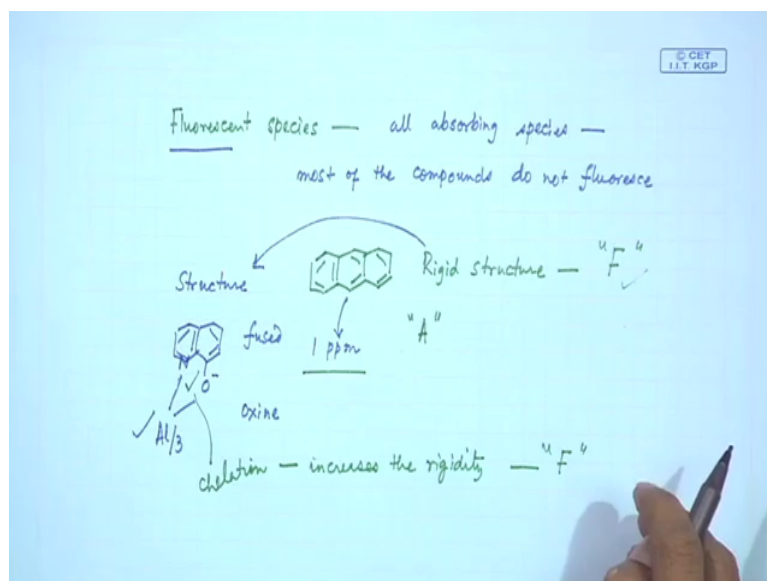 © CET
I.I.T. KGP
Fluorescent species — all absorbing species —
most of the compounds do not fluoresce
Structure
Rigid structure — "F" ✓
fused
1 ppm
"A"
N
O⁻
✓ Al/3
oxine
chelation — increases the rigidity — "F"